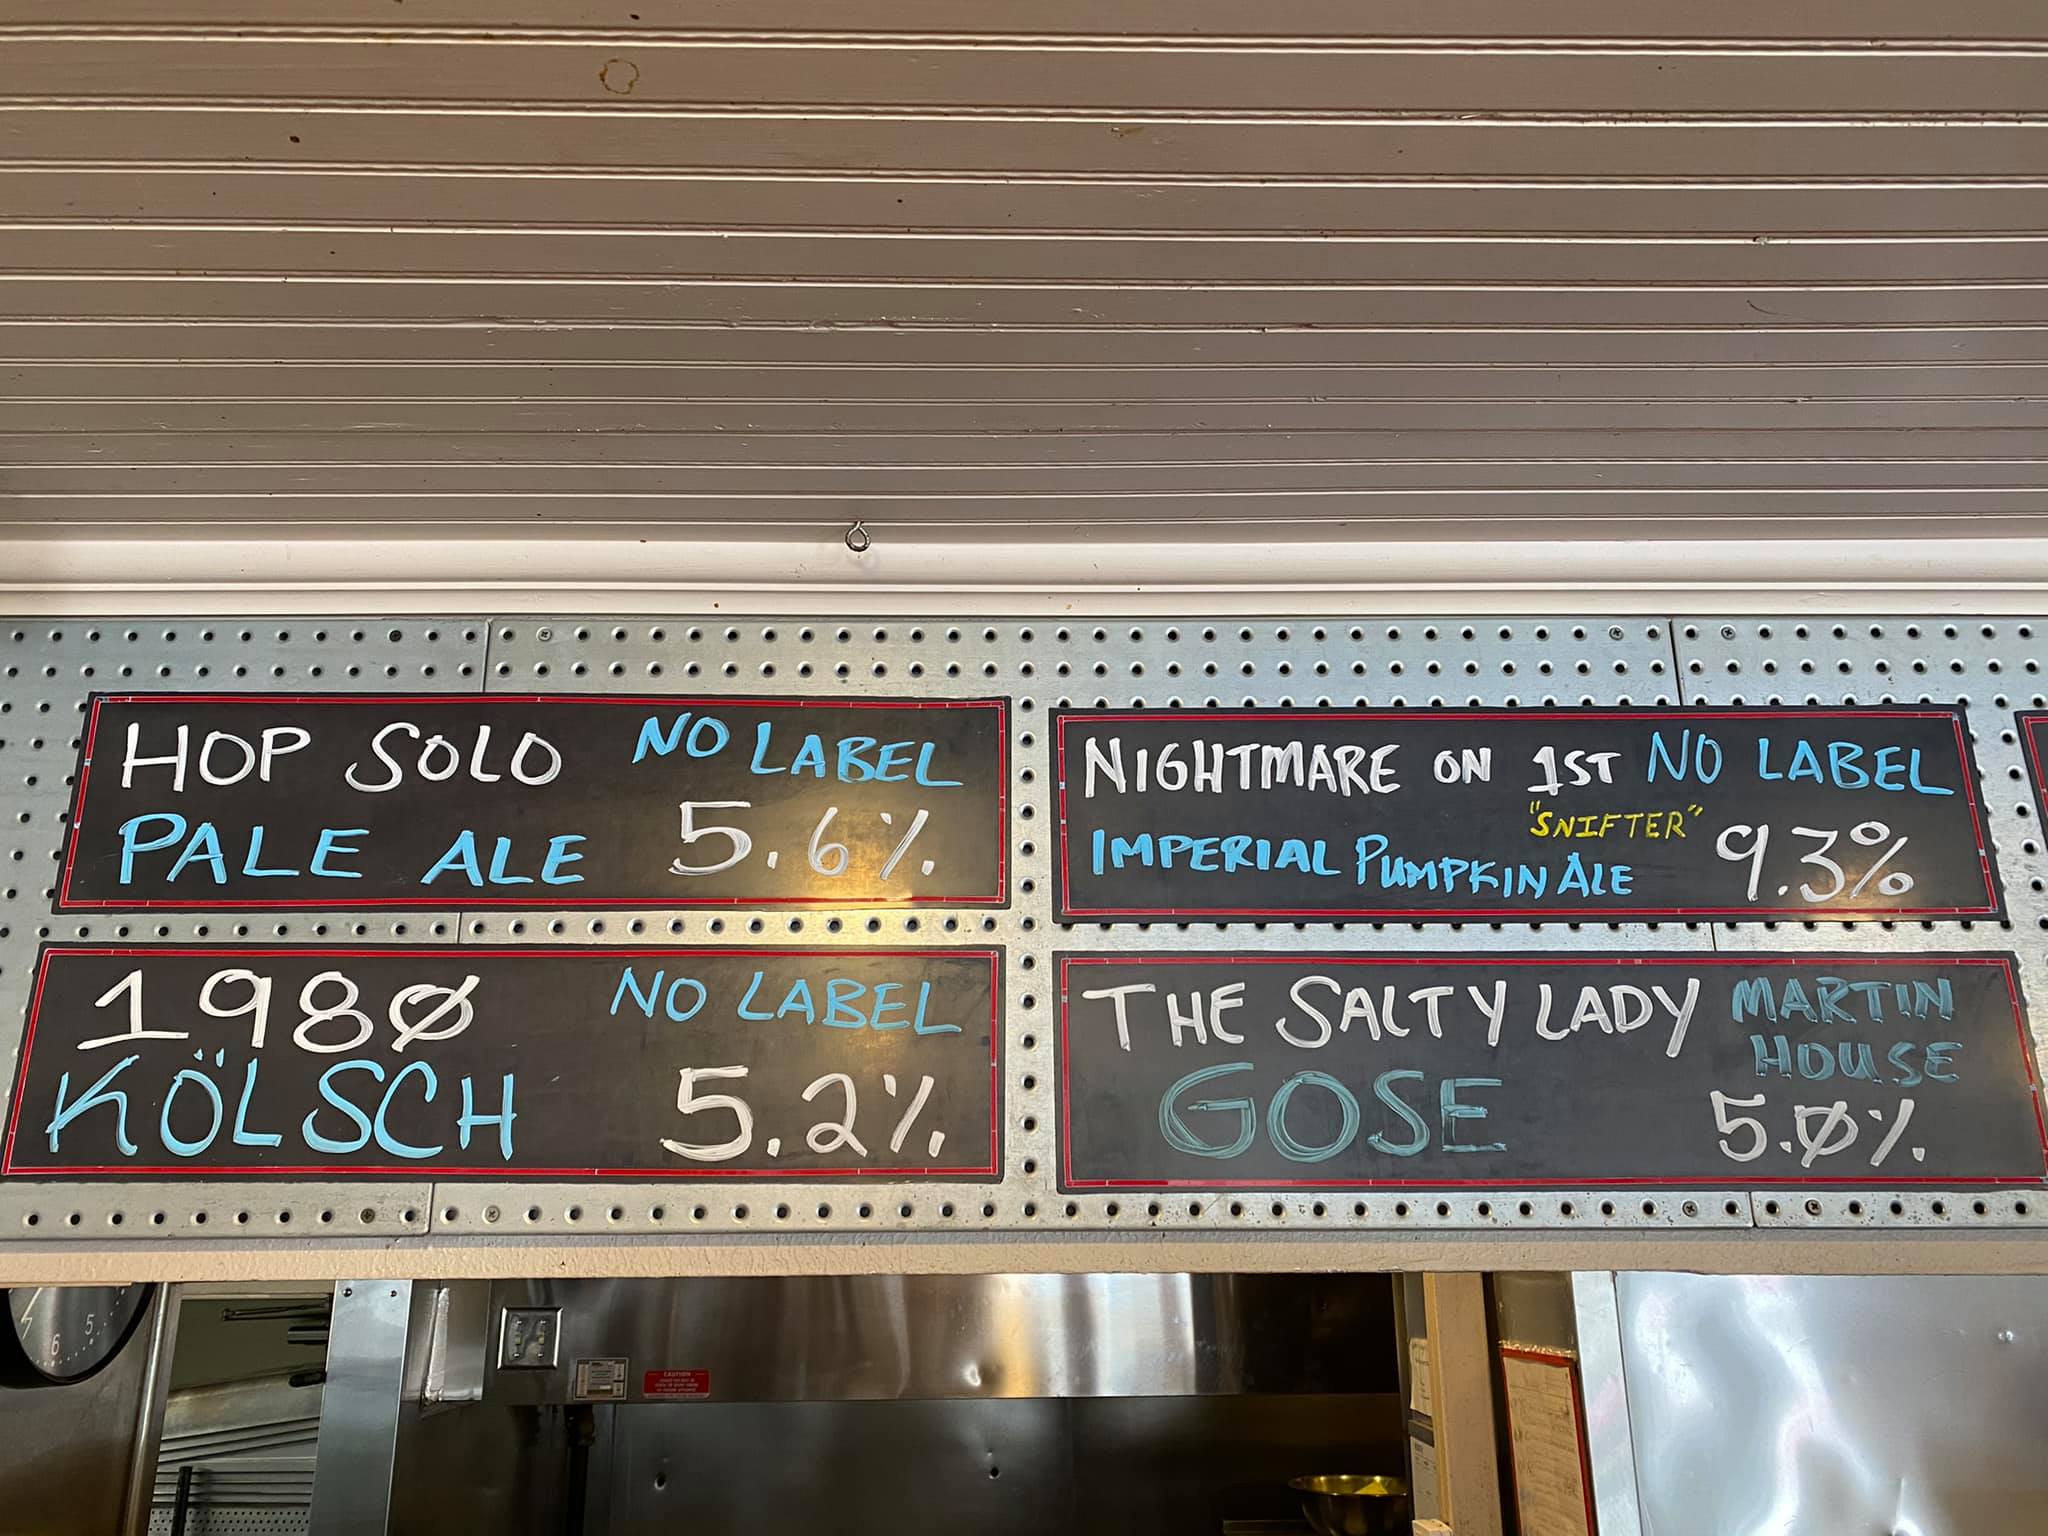 HOP SOLO NO LABEL
PALE ALE 5.6%
NIGHTMARE ON 1ST NO LABEL
"SNIFTER"
IMPERIAL PUMPKIN ALE 9.3%
198Ø NO LABEL
KÖLSCH 5.2%
THE SALTY LADY MARTIN
HOUSE
GOSE 5.Ø%
5
6
CAUTION